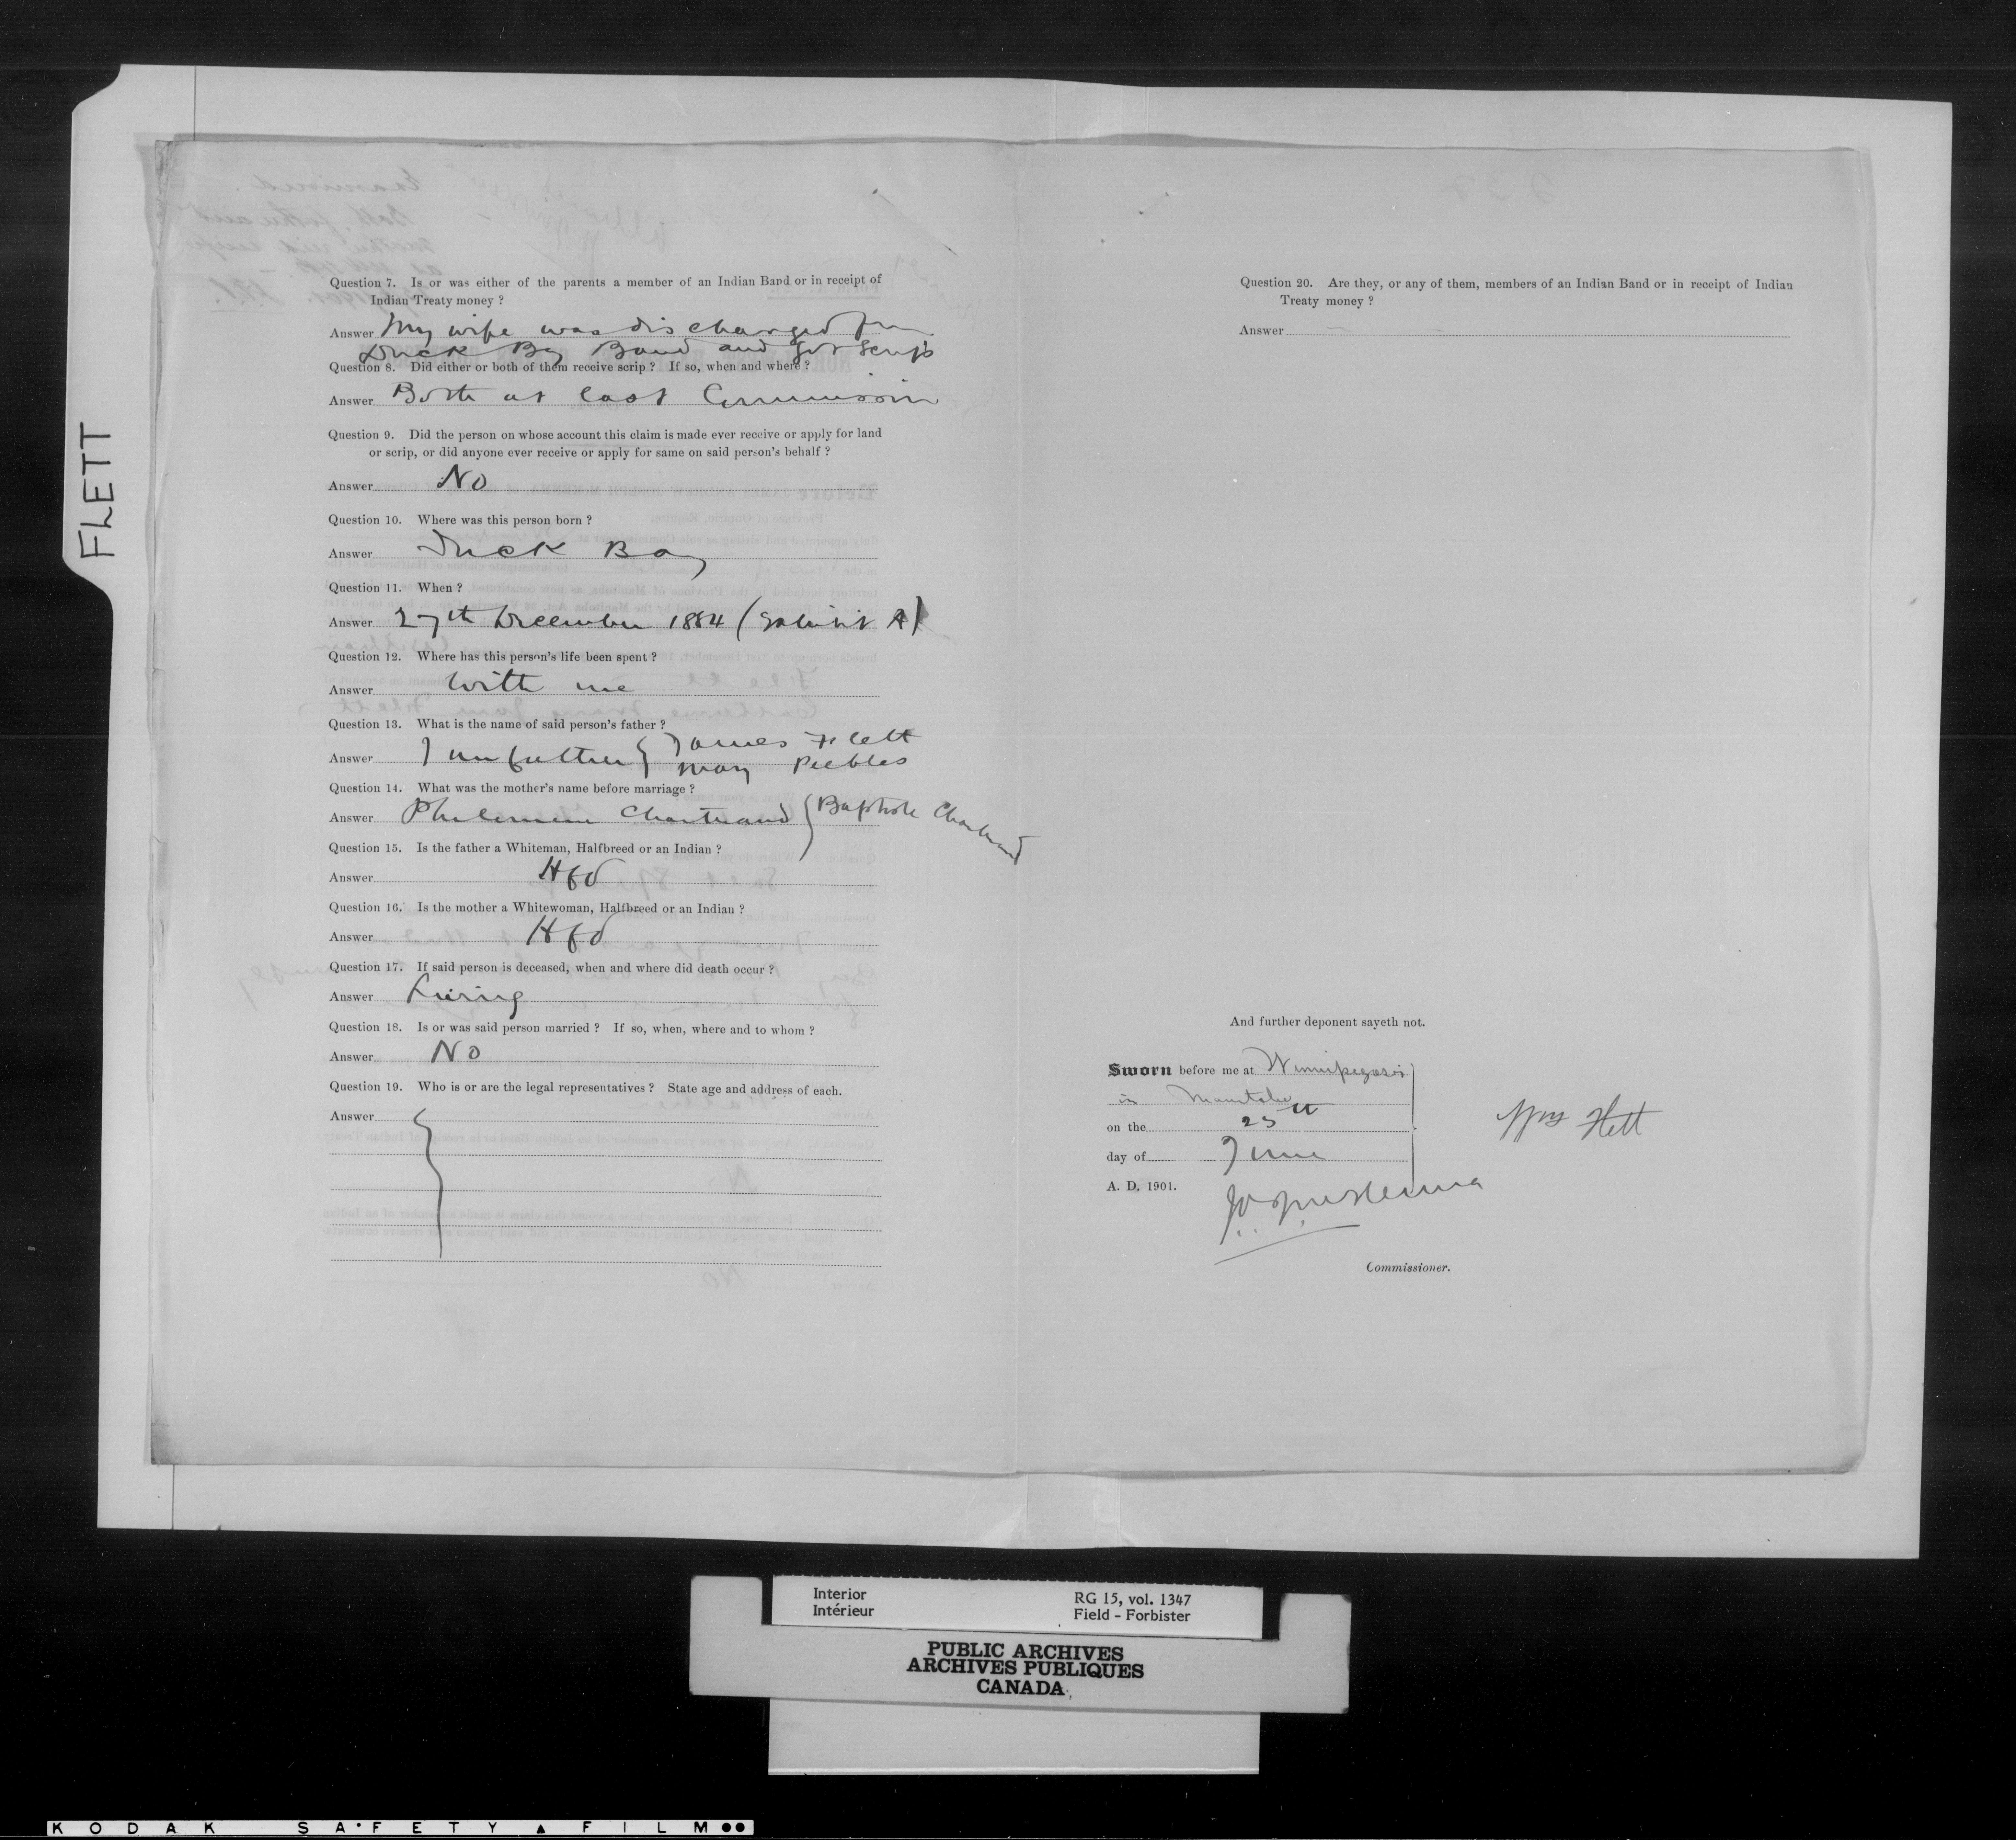 FLETT
Question 7. Is or was either of the parents a member of an Indian Band or in receipt of
Indian Treaty money ?
Answer My wife was discharged from
Duck Bay Band and got scrip
Question 8. Did either or both of them receive scrip ? If so, when and where ?
Answer Both at last Commission
Question 9. Did the person on whose account this claim is made ever receive or apply for land
or scrip, or did anyone ever receive or apply for same on said person's behalf ?
Answer No
Question 10. Where was this person born ?
Answer Duck Bay
Question 11. When ?
Answer 27th December 1884 (Exhibit A)
Question 12. Where has this person's life been spent ?
Answer With me
Question 13. What is the name of said person's father ?
Answer I am father { James Flett
Mary Peebles
Question 14. What was the mother's name before marriage ?
Answer Philemene Chartrand } Baptiste Chartrand
Question 15. Is the father a Whiteman, Halfbreed or an Indian ?
Answer Hfd
Question 16. Is the mother a Whitewoman, Halfbreed or an Indian ?
Answer Hfd
Question 17. If said person is deceased, when and where did death occur ?
Answer Living
Question 18. Is or was said person married ? If so, when, where and to whom ?
Answer No
Question 19. Who is or are the legal representatives ? State age and address of each.
Answer
Question 20. Are they, or any of them, members of an Indian Band or in receipt of Indian
Treaty money ?
Answer
And further deponent sayeth not.
Sworn before me at Winnipegosis
in Manitoba
on the 25th
day of June
A. D. 1901.
Wm Flett
Commissioner.
Interior
Intérieur
RG 15, vol. 1347
Field - Forbister
PUBLIC ARCHIVES
ARCHIVES PUBLIQUES
CANADA
KODAK SAFETY FILM